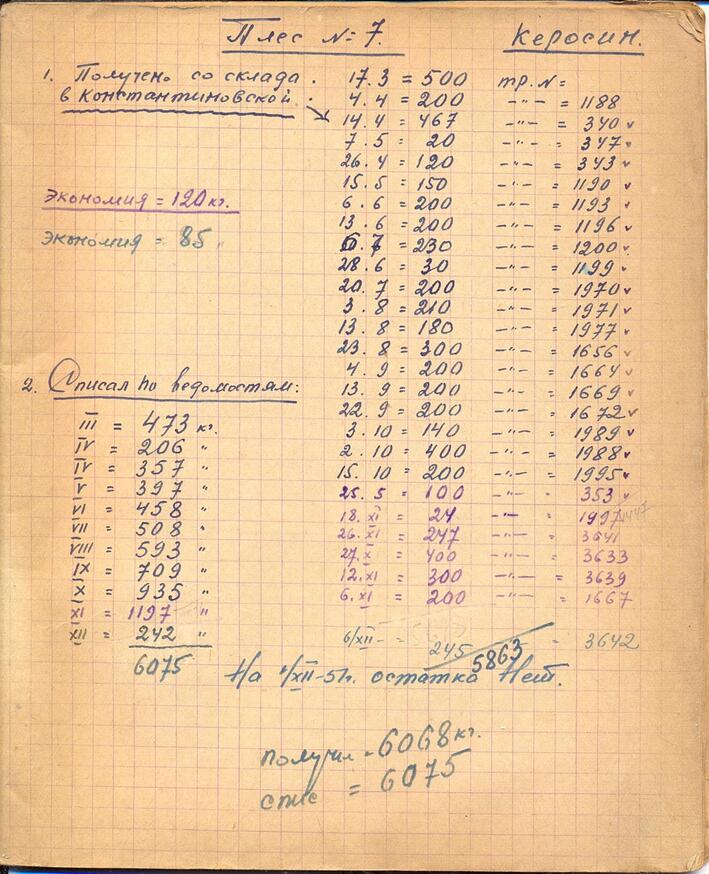 Плес № 7.
Керосин.
1. Получено со склада.
в Константиновской.
17.3 = 500 тр. № =
4.4 = 200 -"- = 1188
14.4 = 467 -"- = 340 v
7.5 = 20 -"- = 347 v
26.4 = 120 -"- = 343 v
15.5 = 150 -"- = 1190 v
6.6 = 200 -"- = 1193 v
13.6 = 200 -"- = 1196 v
7 = 230 -"- = 1200 v
28.6 = 30 -"- = 1199 v
20.7 = 200 -"- = 1970 v
3.8 = 210 -"- = 1971 v
13.8 = 180 -"- = 1977 v
23.8 = 300 -"- = 1656 v
4.9 = 200 -"- = 1664 v
13.9 = 200 -"- = 1669 v
22.9 = 200 -"- = 1672 v
3.10 = 140 -"- = 1989 v
2.10 = 400 -"- = 1988 v
15.10 = 200 -"- = 1995 v
25.5 = 100 -"- = 353 v
18.XI = 24 -"- = 1997
26.XI = 247 -"- = 3641
27.X = 400 -"- = 3633
12.XI = 300 -"- = 3639
6.XI = 200 -"- = 1667
6/XII - = 245 = 3642
5863
Экономия = 120 кг.
Экономия = 85 "
2. Списал по ведомостям:
III = 473 кг.
IV = 206 "
IV = 357 "
V = 397 "
VI = 458 "
VII = 508 "
VIII = 593 "
IX = 709 "
X = 935 "
XI = 1197 "
XII = 242 "
6075
На 1/XII-51г. остатка Нет.
получил = 6068 кг.
спис = 6075